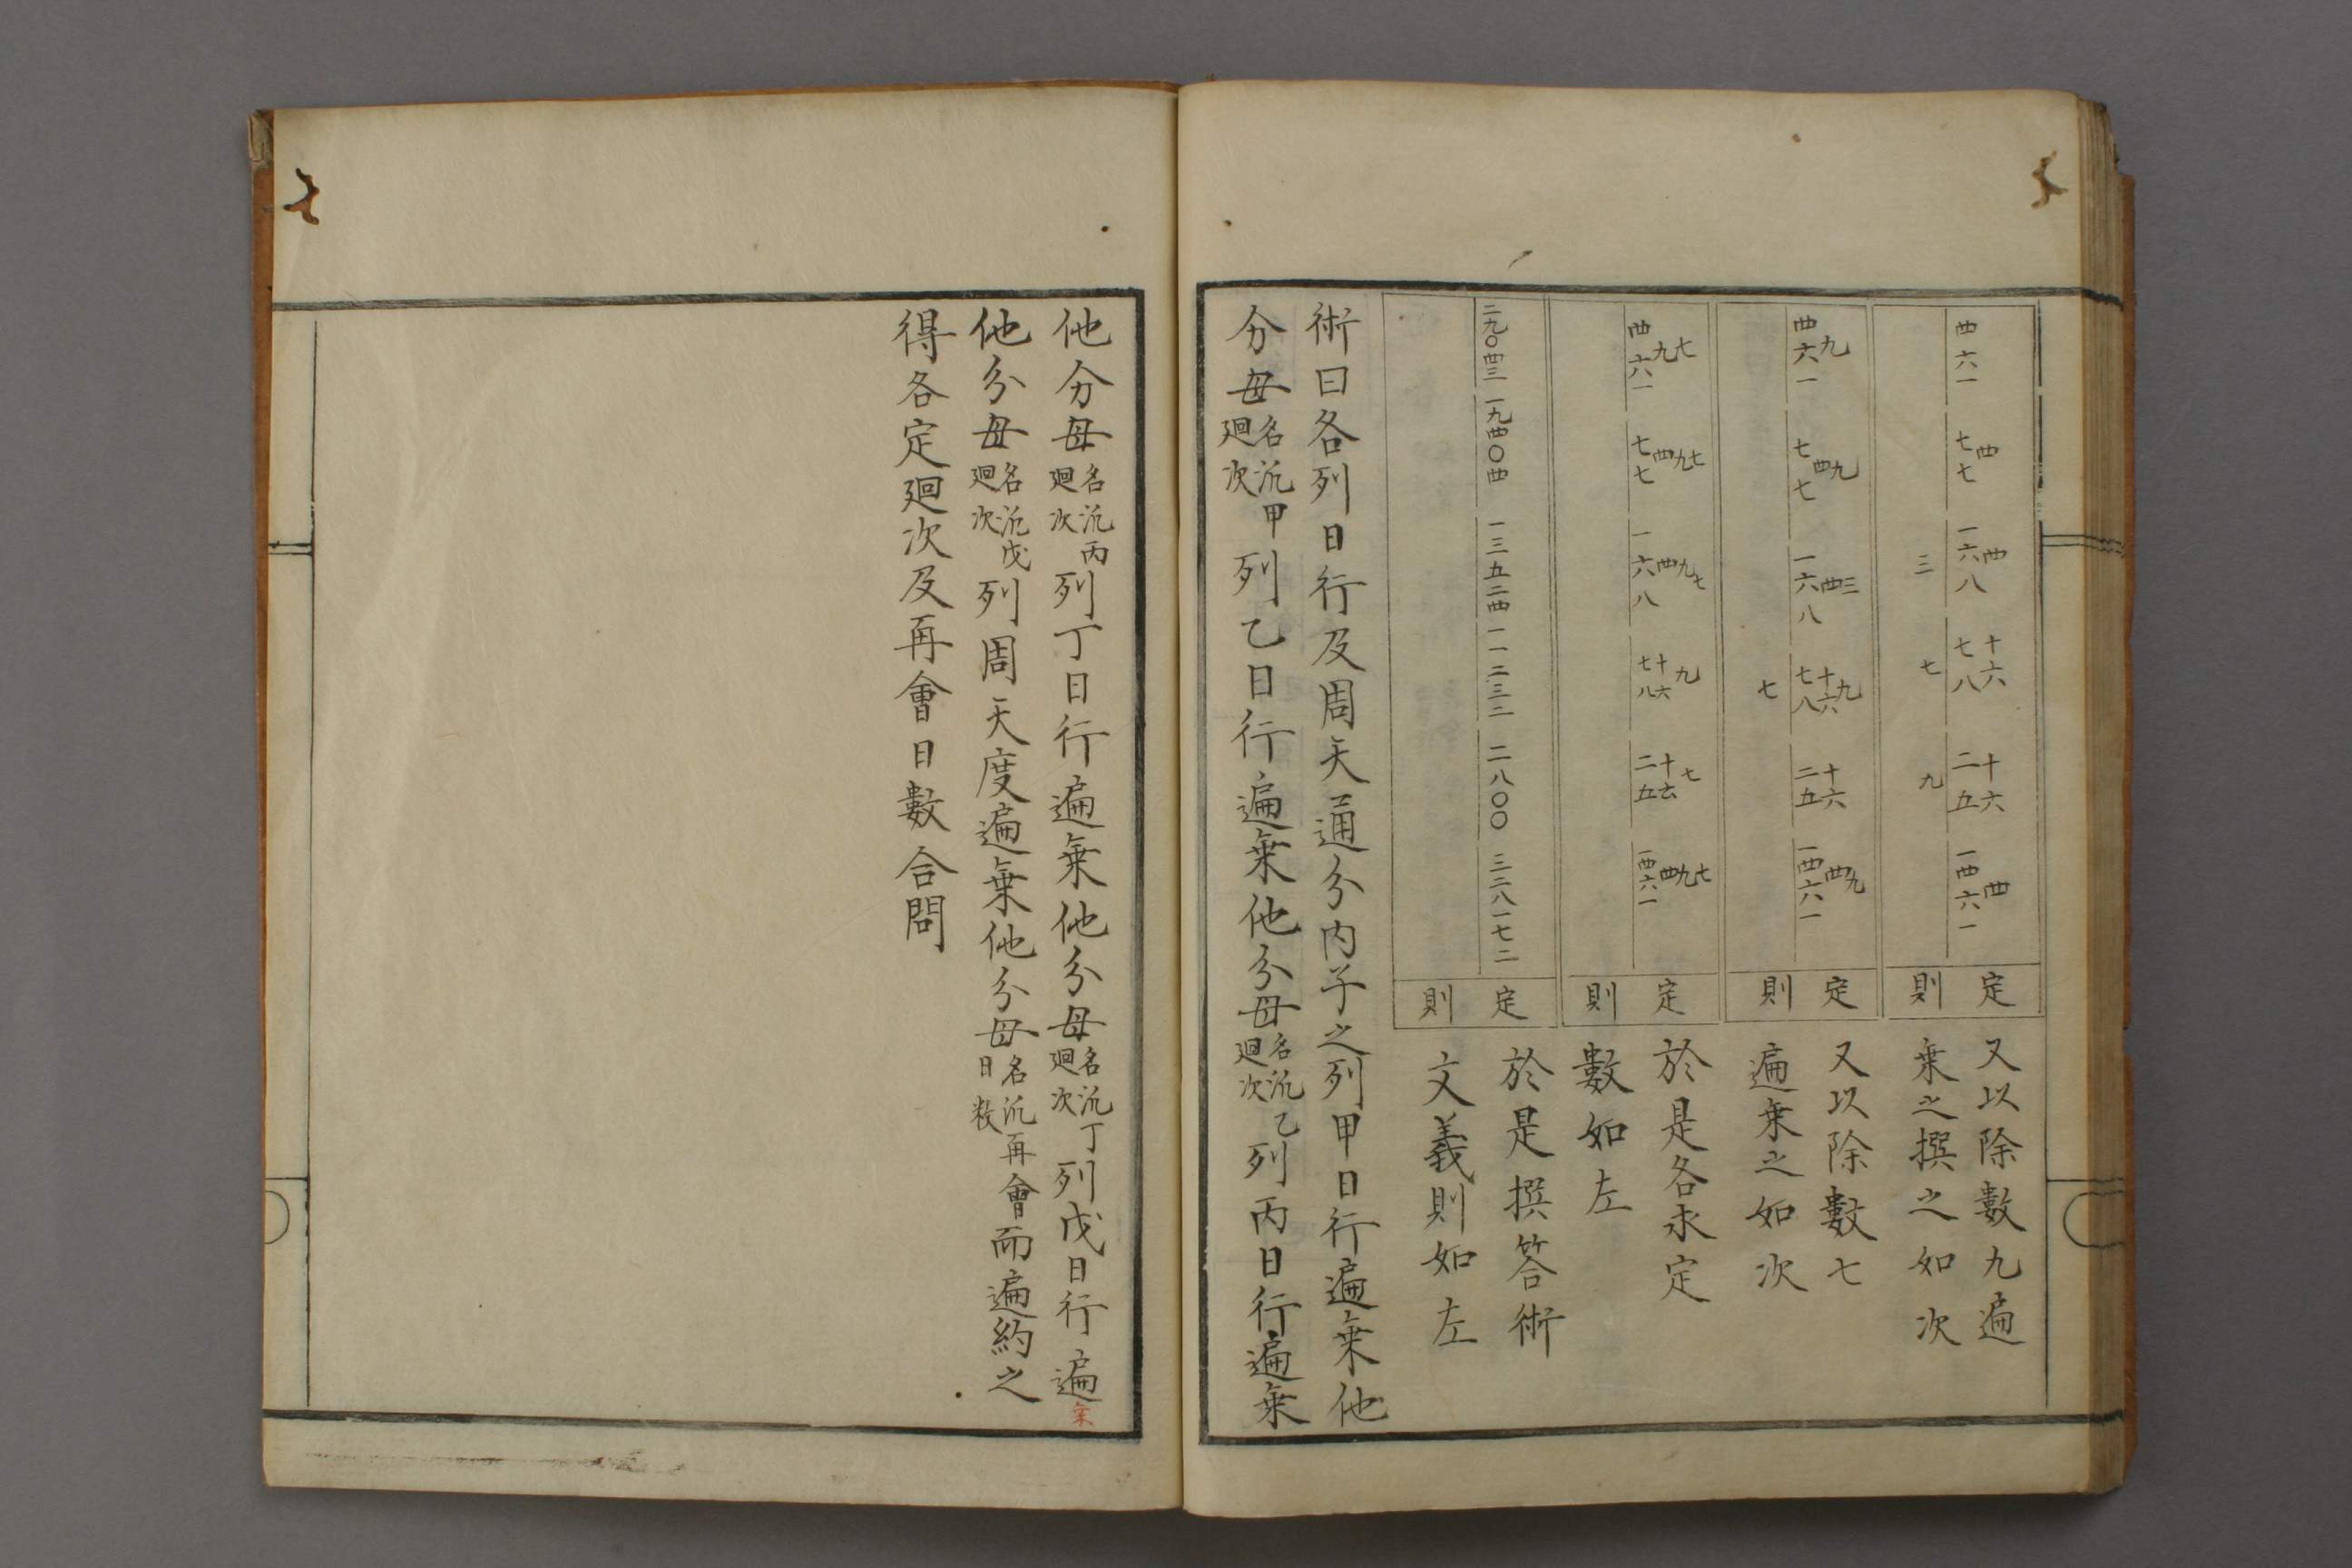 四六一 七七四 一六八四三 七八十六七 二五十六九 一四六一四
定則
又以除數九遍
乗之撰之如次
四六一九 七七四九 一六八四三 七八十六九七 二五十六 一四六一四九
定則
又以除數七
遍乗之如次
四六一九七 七七四九七 一六八四九七 七八十六九 二五十六七 一四六一四九七
定則
於是各求定
數如左
二九〇四三 一九四〇四 一三五二四 一一二三二 二八〇〇 三二八一七二
定則
於是撰答術
文義則如左
術曰各列日行及周天通分内子之列甲日行遍乗他
分母名沉甲廻次列乙日行遍乗他分母名沉乙廻次列丙日行遍乗
他分母名沉丙廻次列丁日行遍乗他分母名沉丁廻次列戊日行遍乗
他分母名沉戊廻次列周天度遍乗他分母名沉再會日数而遍約之
得各定廻次及再會日數合問